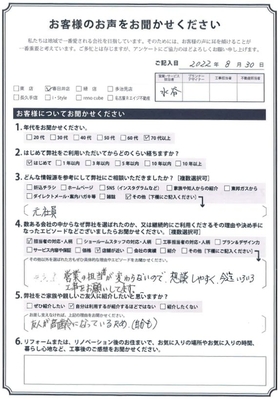 お客様のお声をお聞かせください
私たちは地域で一番愛される会社を目指しています。そのためには、お客様の声に耳を傾けることが
一番重要と考えています。ご多忙とは存じますが、アンケートにご協力のほどよろしくお願い申し上げます。
ご記入日 2022年 8月 30日
水谷
お客様についてお聞かせください
1. 年代をお聞かせください。
20代 30代 40代 50代 60代 70代以上
2. はじめて弊社をご利用いただいてからどのくらい経ちますか?
はじめて 1年以内 3年以内 5年以内 10年以内 10年以上
3. どんな情報源を参考にして弊社にご相談いただきましたか?【複数選択可】
折込チラシ ホームページ SNS(インスタグラムなど) 家族や知人からの紹介 東邦ガスから
ダイレクトメール・案内/カモ書 雑誌 その他(下欄にご記入ください)
元社員
4. 数ある会社の中からなぜ弊社を選ばれたのか、又は継続的にご利用くださるその理由や決め手に
なったエピソードなどございましたらお聞かせください。【複数選択可】
担当営業の対応・人柄 ショールームスタッフの対応・人柄 工事担当者の対応・人柄 プラン&デザイン力
サービス内容や対応 価格 店舗が近い 会社の実績 紹介 その他(下欄にご記入ください)
営業の担当が変わらないので 想談しやすく、今迄いろいろ
工事をお願いしてます。
5. 弊社をご家族や親しいご友人に紹介したいと思いますか?
ぜひ紹介したい 自分は利用するが紹介するほどではない 紹介したくない
6. リフォームまたは、リノベーション後のお住まいで、お気に入りの場所やお気に入りの時間、
暮らし心地など、工事後のご感想をお聞かせください。